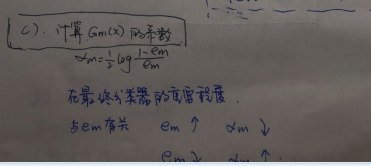 c). 计算 Gm(x) 的系数
αm = 1/2 log (1-em)/em
在最终分类器的重要程度.
与em有关 em ↑ αm ↓
em ↓ αm ↑